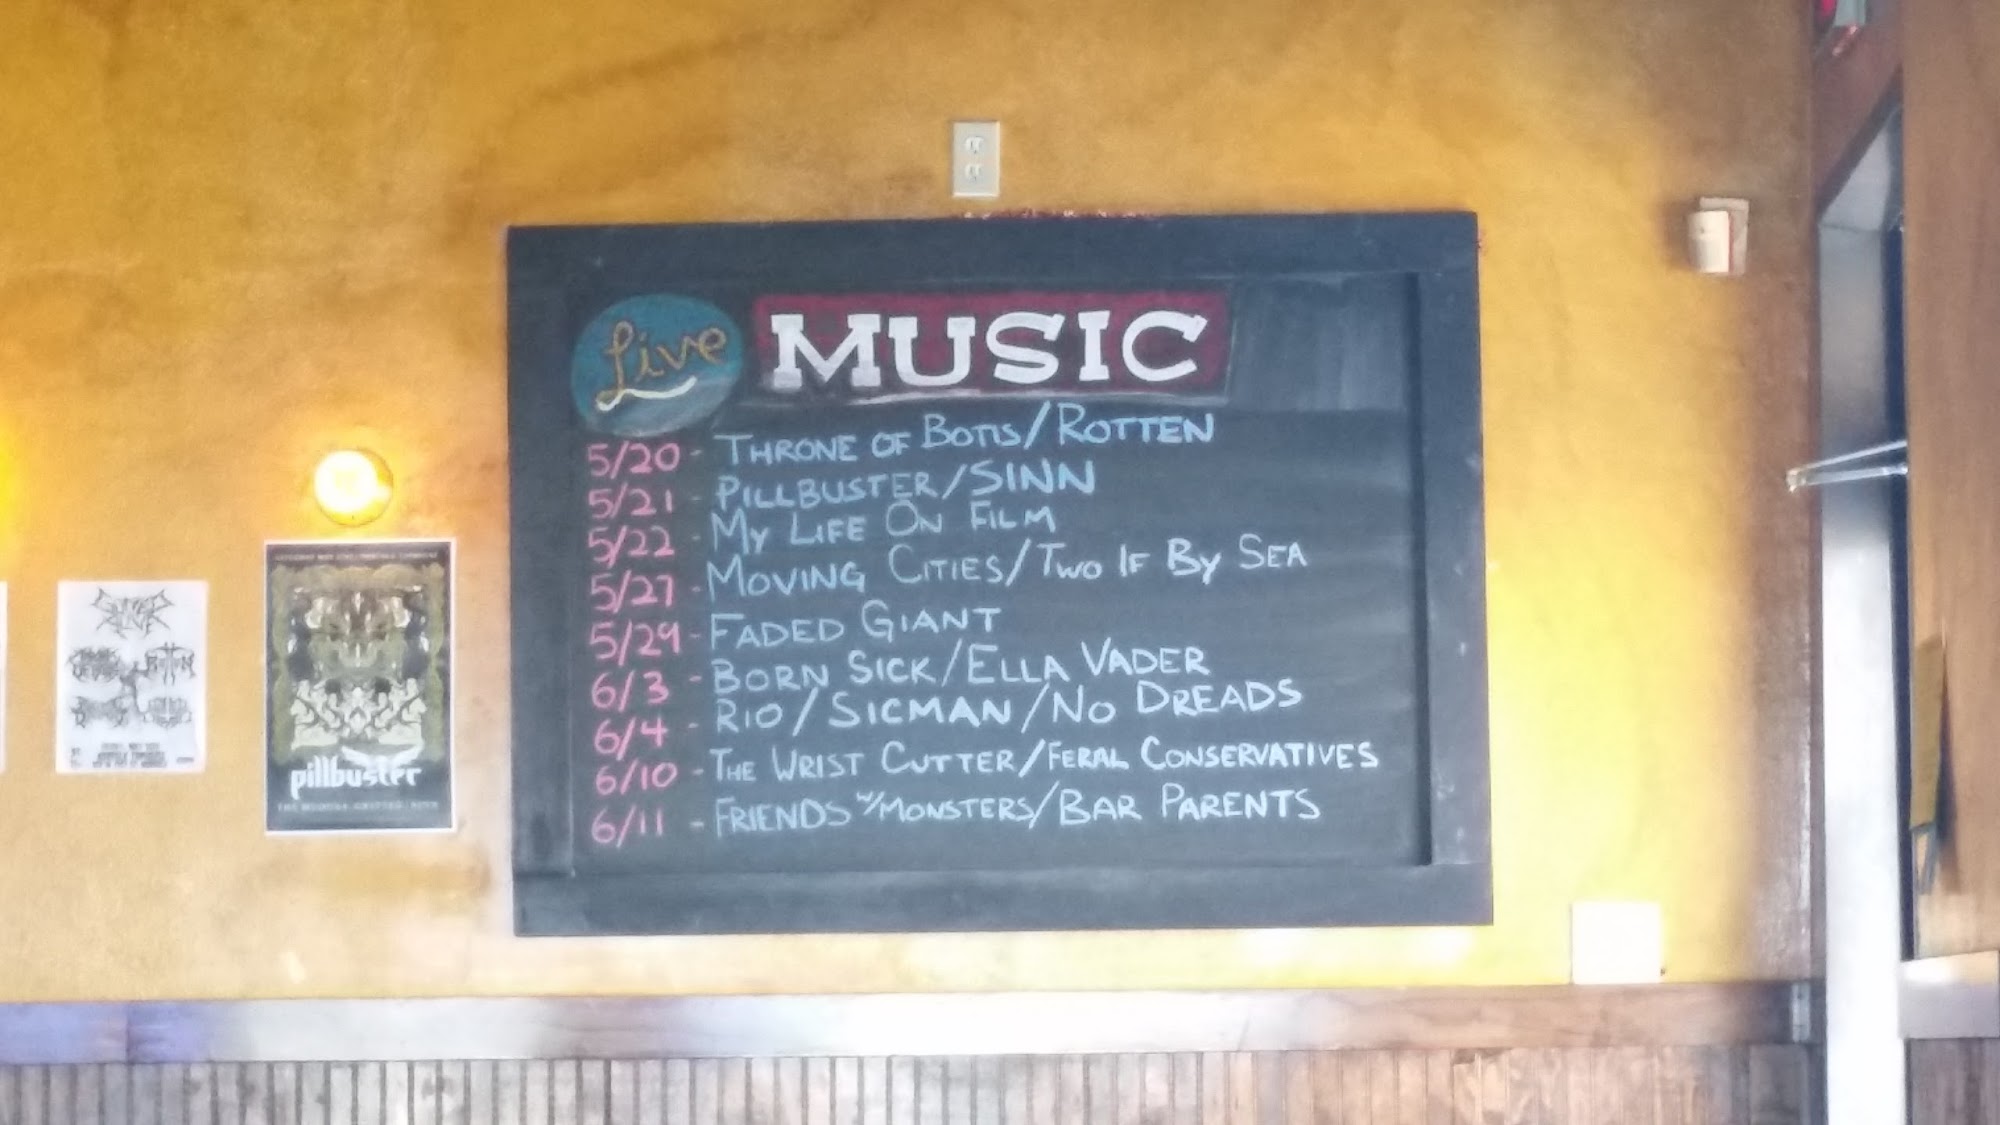 Live MUSIC
5/20 - THRONE OF BOTIS/ROTTEN
5/21 - PILLBUSTER/SINN
5/22 - MY LIFE ON FILM
5/27 - MOVING CITIES/TWO IF BY SEA
5/29 - FADED GIANT
6/3 - BORN SICK/ELLA VADER
6/4 - RIO/SICMAN/NO DREADS
6/10 - THE WRIST CUTTER/FERAL CONSERVATIVES
6/11 - FRIENDS W/MONSTERS/BAR PARENTS
pillbuster